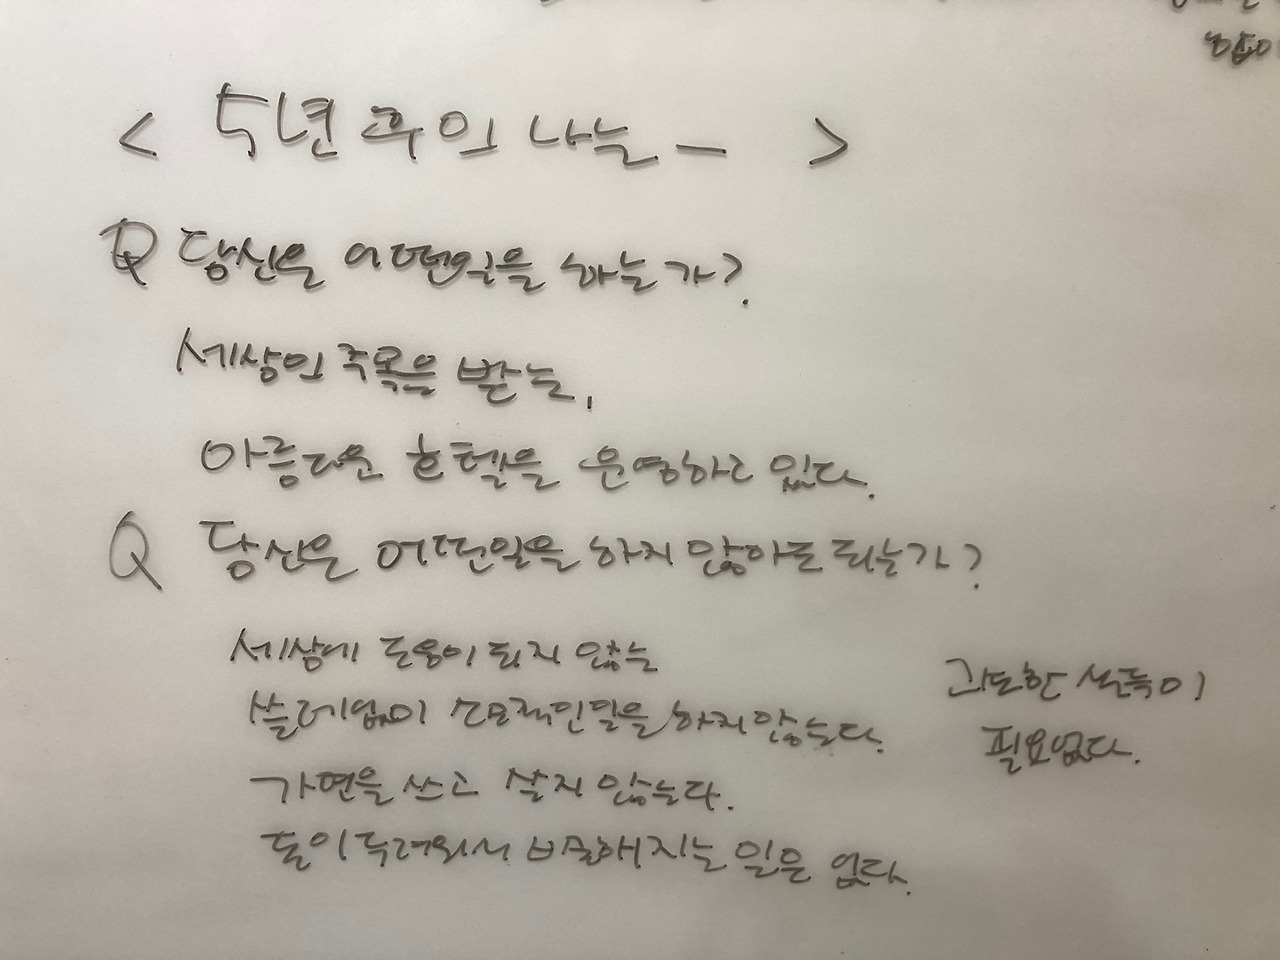 < 5년 후의 나는 — >
Q 당신은 어떤일을 하는가?
세상의 주목을 받는,
아름다운 호텔을 운영하고 있다.
Q 당신은 어떤일을 하지 않아도 되는가?
세상에 도움이 되지 않는
쓸데없이 소모적인일을 하지않는다.
가면을 쓰고 살지 않는다.
돈이 두려워서 비굴해지는 일은 없다.
과도한 설득이
필요없다.